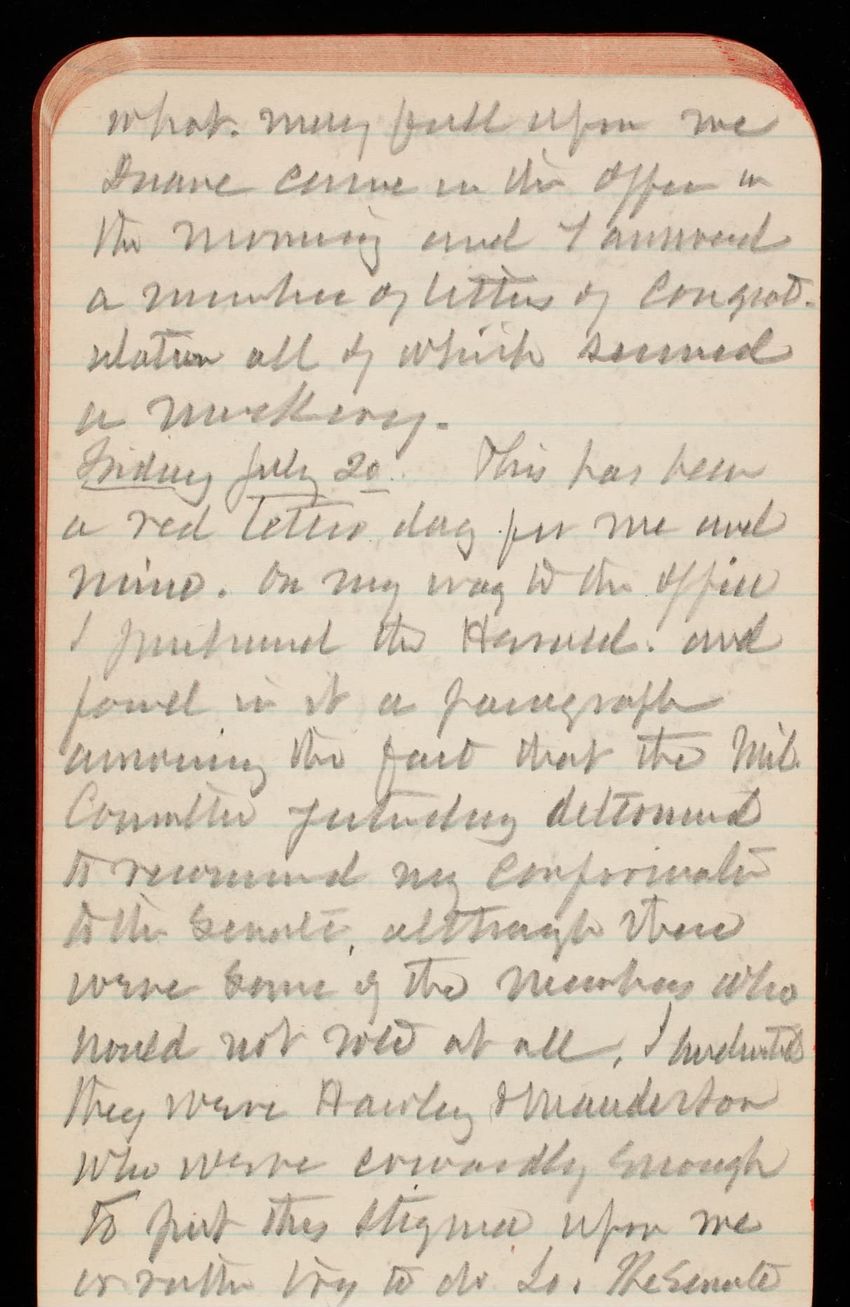 what may fall upon me
Duane came in the office in
the morning and I answered
a number of letters of congrat-
ulation all of which seemed
a mockery.
Friday July 20. This has been
a red letter day for me and
mine. On my way to the office
I purchased the Herald. and
found in it a paragraph
announcing the fact that the Mil.
Committee yesterday determined
to recommend my confirmation
to the Senate, although there
were some of the members who
would not vote at all,
they were Hawley & Manderson
who were cowardly enough
to put this stigma upon me
or rather try to do so. The Senate